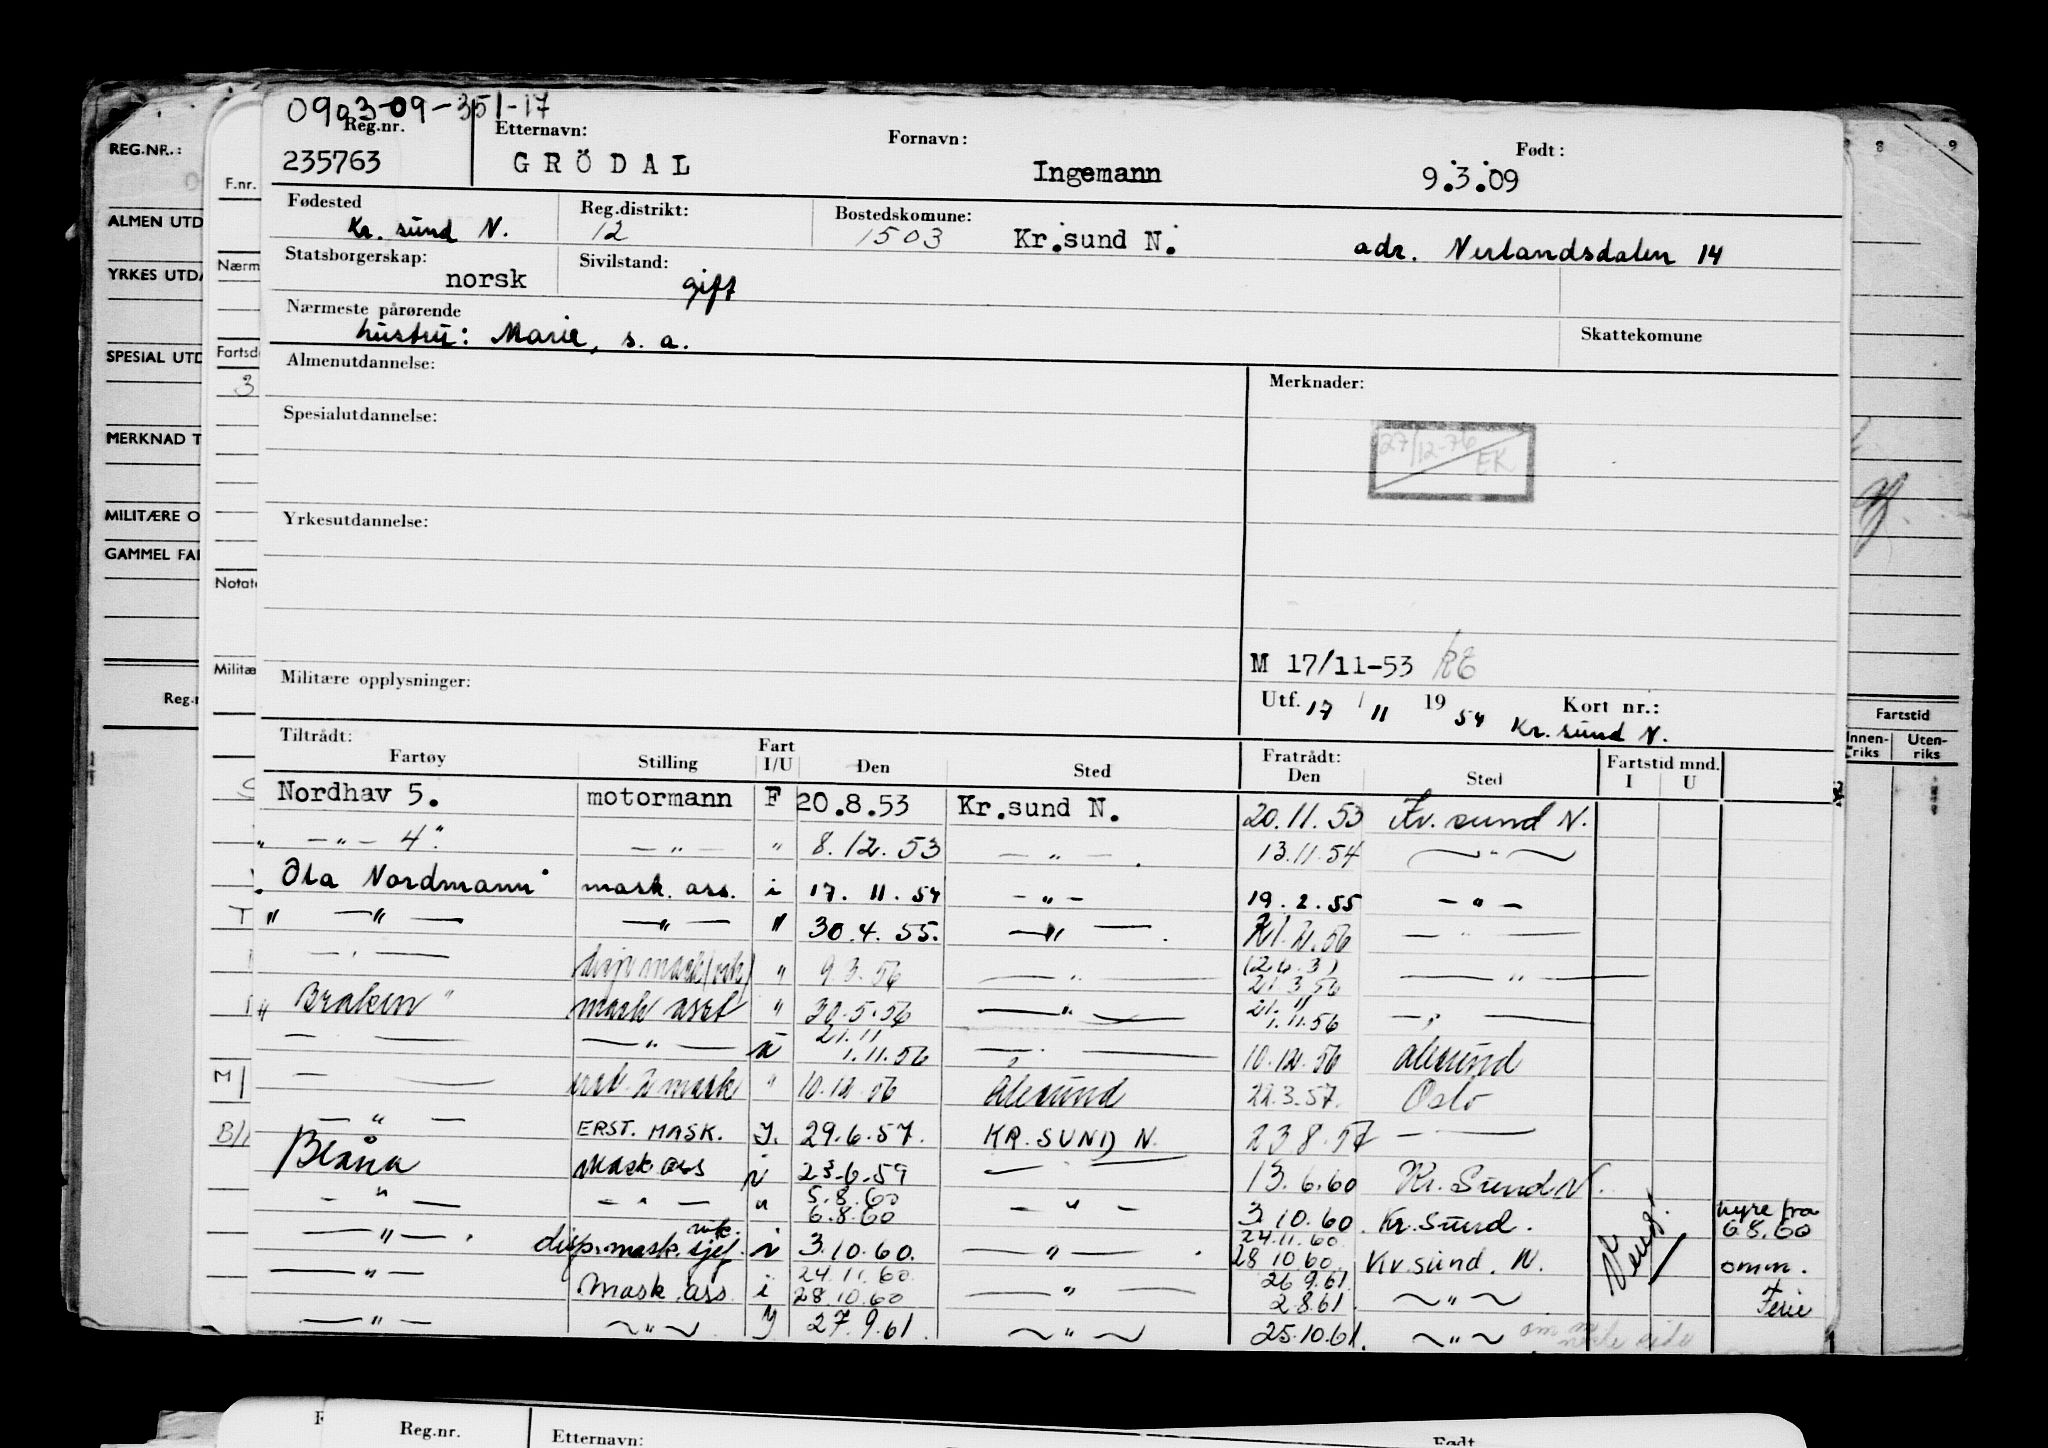 0903-09-351-17
Reg.nr. Etternavn: Fornavn: Født:
235763 GRÖDAL Ingemann 9.3.09
Fødested Reg.distrikt: Bostedskomune:
Kr. sund N. 12 1503 Kr.sund N. adr. Nerlandsdalen 14
Statsborgerskap: Sivilstand:
norsk gift
Nærmeste pårørende
hustru: Marie, s. a. Skattekomune
Almenutdannelse: Merknader:
Spesialutdannelse:
27/12-76 EK
Yrkesutdannelse:
M 17/11-53
Militære opplysninger:
Utf. 17 / 11 19 54 Kort nr.:
Kr. sund N.
Tiltrådt: Fratrådt:
Fartøy Stilling Fart I/U Den Sted Den Sted Fartstid mnd. I U
Nordhav 5. motormann F 20.8.53 Kr.sund N. 20.11.53 Kr. sund N.
" — " — 4" — " — " 8.12.53 — " — . 13.11.54 — " —
"Ola Nordmann" mask. ass. i 17.11.54 — " — 19.2.55 — " —
" — " — — " — " 30.4.55. — " — . 56 — " —
— " — " 9.3.56 — " — 21.3.56 — " —
" Braken " mask asst " 30.5.56 — " — 1.11.56 — " —
— — — " — u 1.11.56 — " — 10.12.56 Alesund
— — mask " 10.12.56 Alesund 22.3.57. Oslo
— " — ERST. MASK. I. 29.6.57. KR. SUND N. 23.8.57 — —
Blåna Mask ass i 23.6.59 — — 13.6.60 Kr. Sund N.
— " — — " — " 5.8.60 6.8.60 — " — 3.10.60. Kr. Sund. hyre fra 6.8.60
— " — . disp. mask. sjef. vik. i 3.10.60. — " — . 24.11.60 28 10 60. Kr. sund. N. omm.
— " — Mask. ass. i 24.11.60. 28.10.60 — " — 26 9.61 2 8.61. — " — Ferie
— " — — " — I 27.9.61. — " — 25.10.61. — " —
REG.NR.:
ALMEN UTD
YRKES UTDA
SPESIAL UTD
MERKNAD T
MILITÆRE O
GAMMEL FA
Reg.n
F.nr.
Nærm
Fartsd
3
Notate
Militæ
T
M
8 9
Fartstid
Innen-riks Uten-riks
Reg.nr. Etternavn: Født